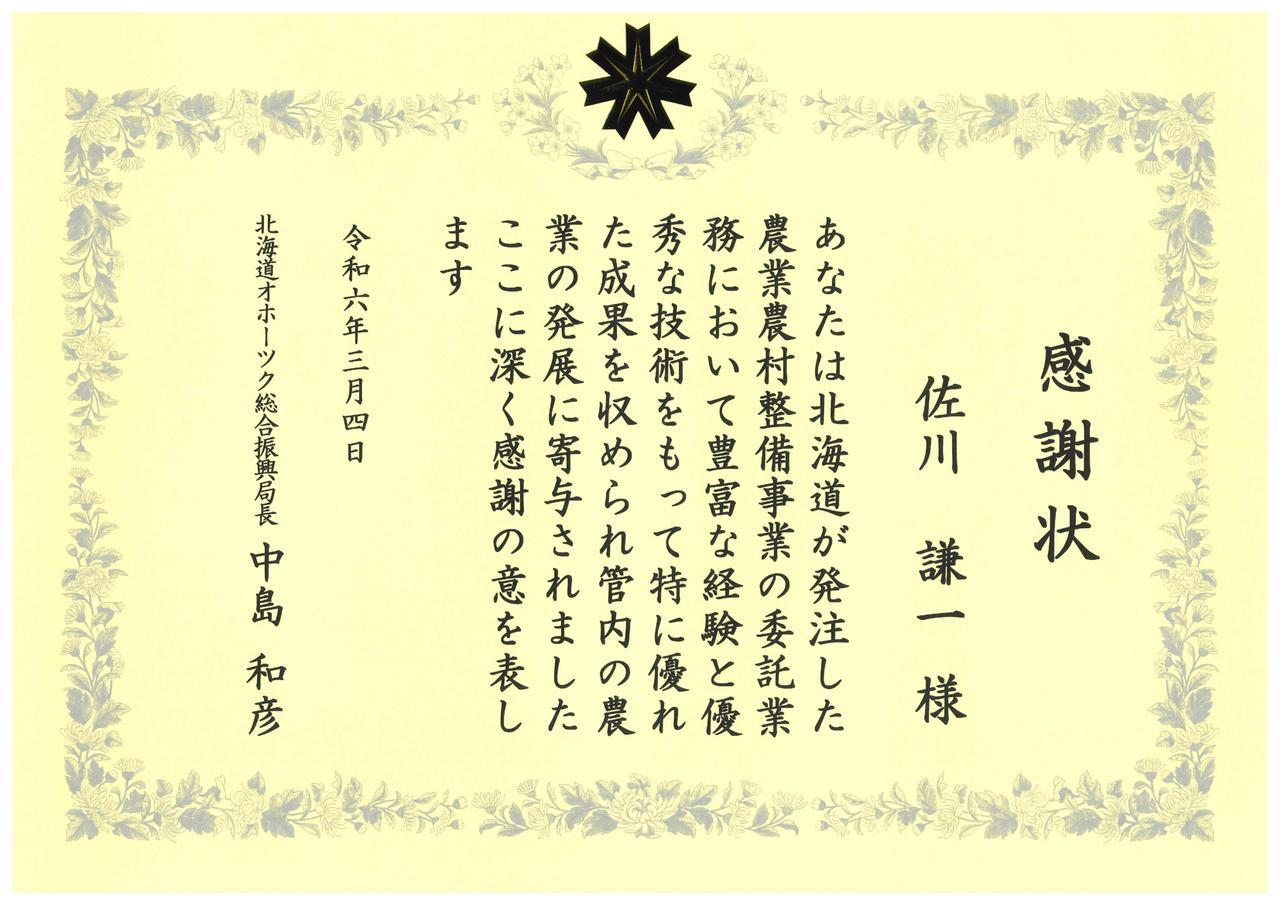 感謝状
佐川 謙一 様
あなたは北海道が発注した
農業農村整備事業の委託業
務において豊富な経験と優
秀な技術をもって特に優れ
た成果を収められ管内の農
業の発展に寄与されました
ここに深く感謝の意を表し
ます
令和六年三月四日
北海道オホーツク総合振興局長 中島 和彦